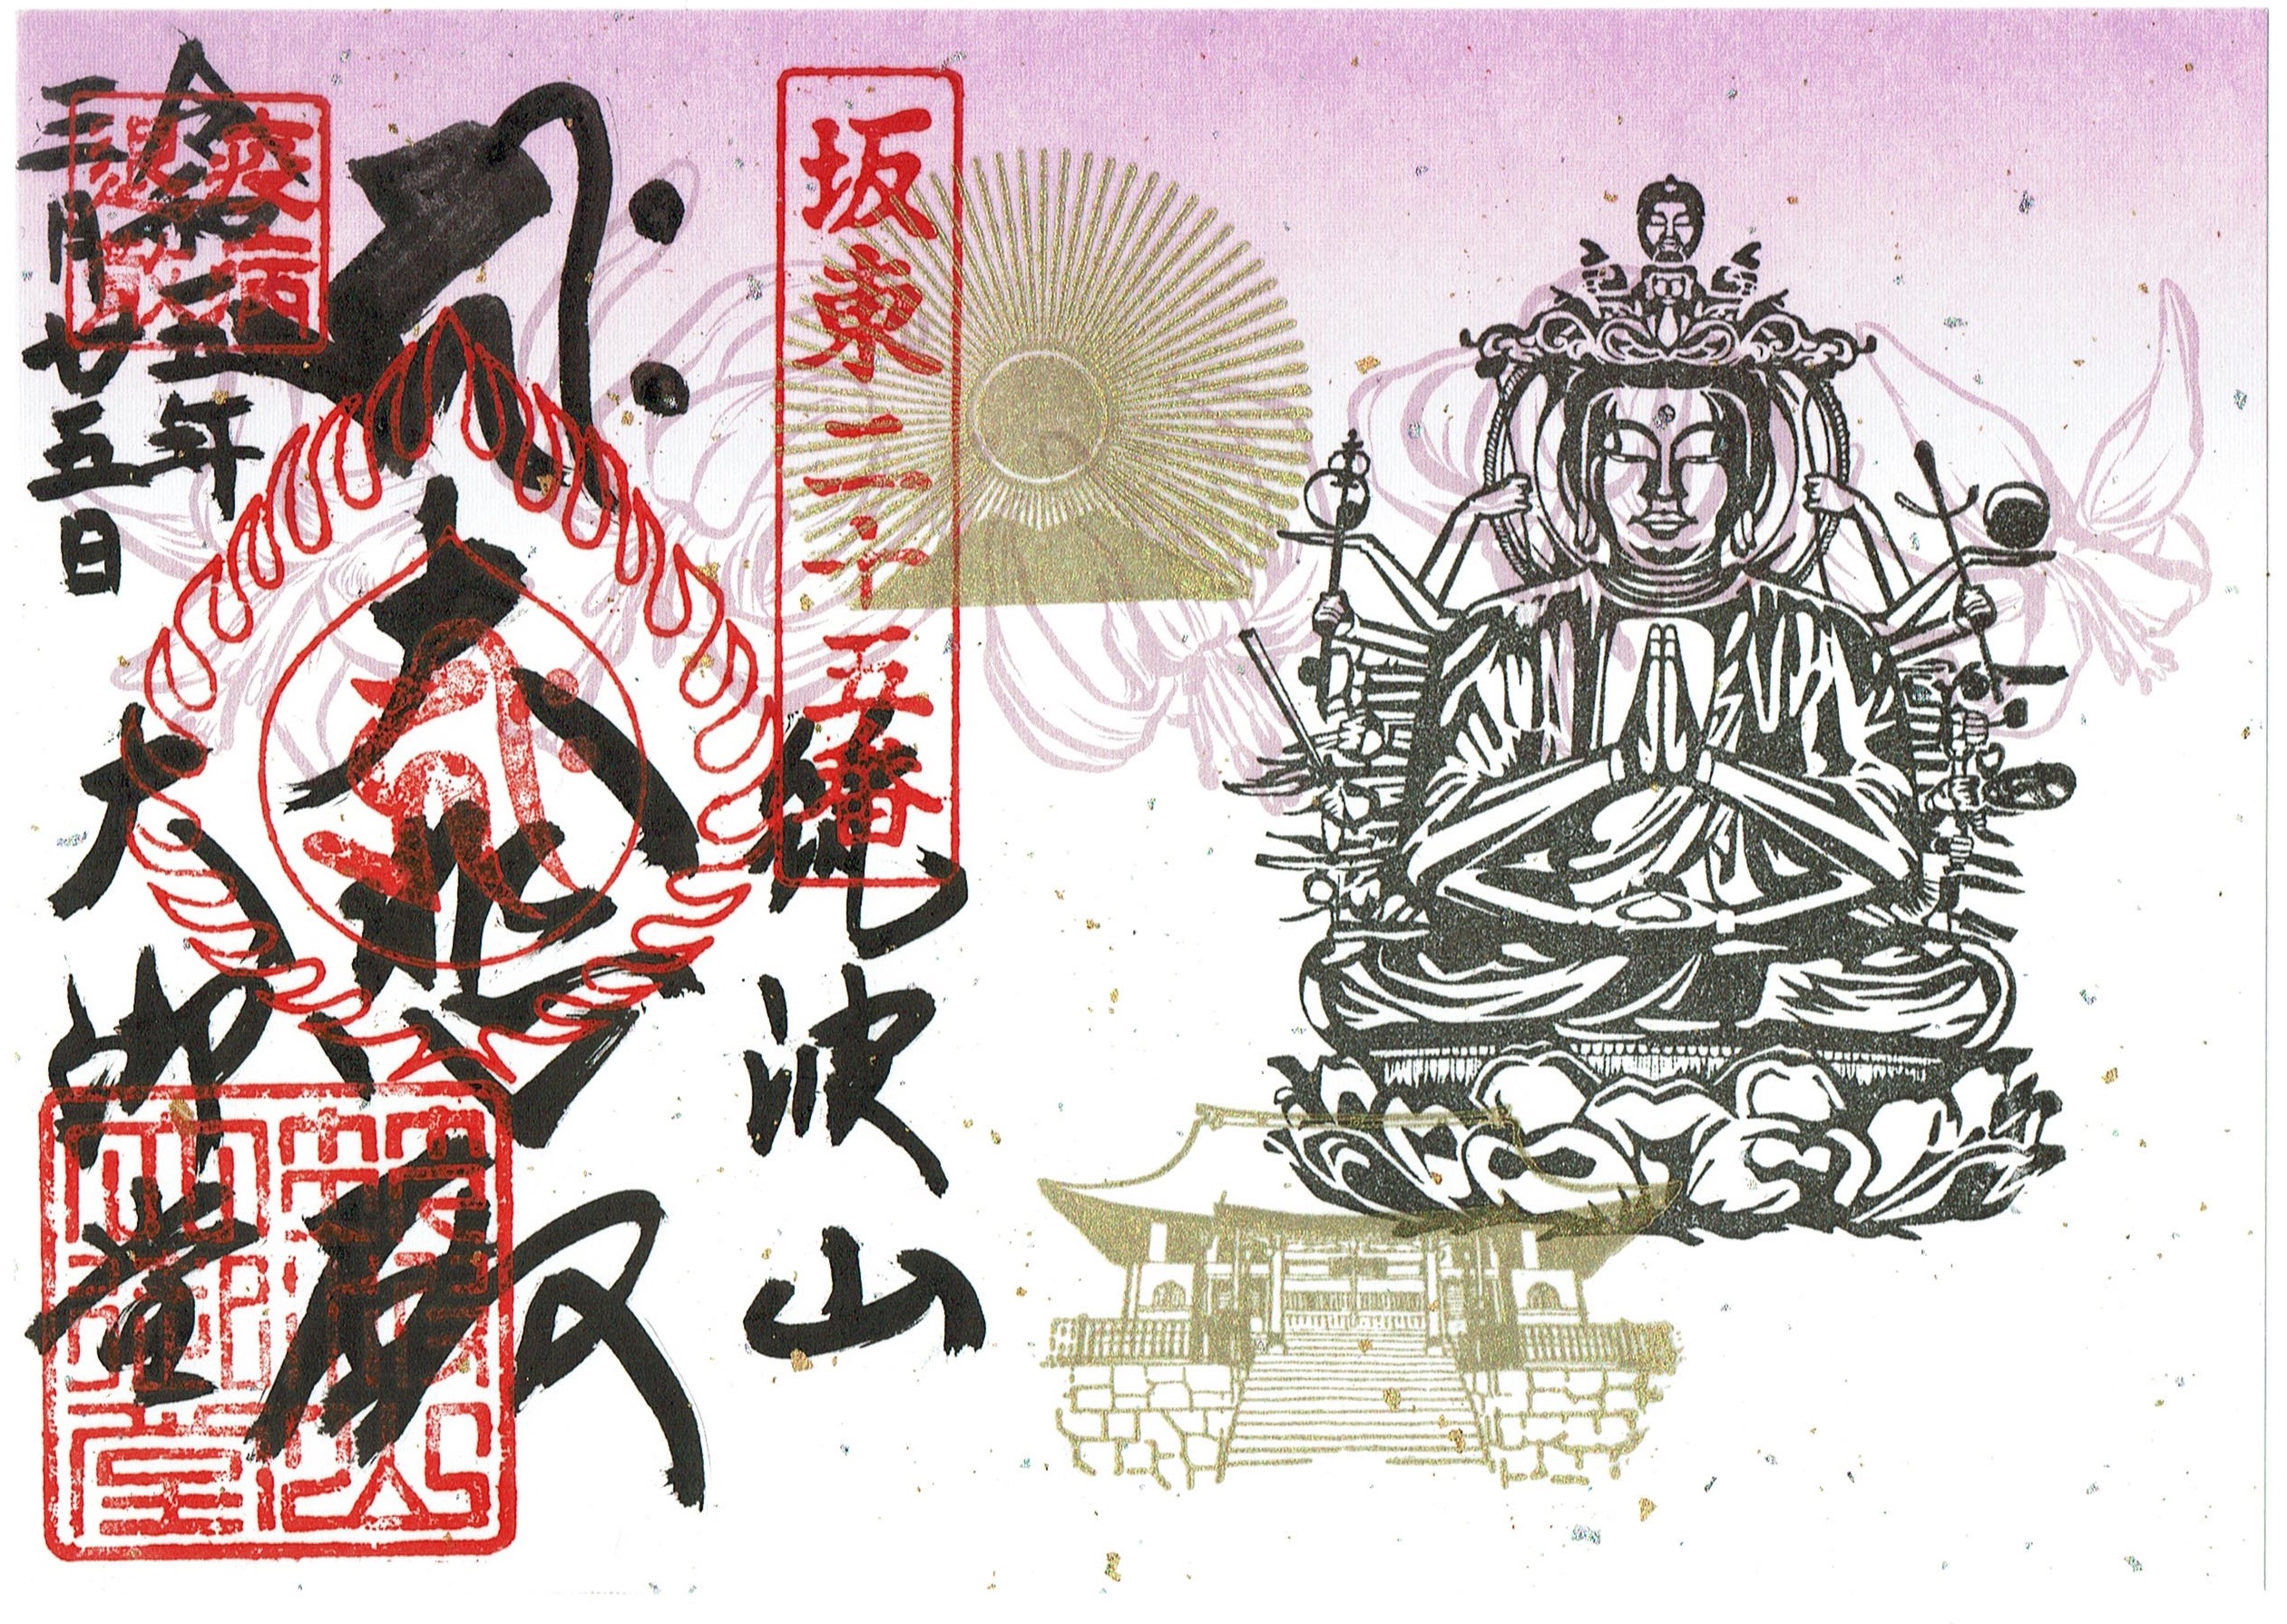 坂東二十五番
筑波山
大悲殿
大御堂
令和五年
三月廿五日
疫病
退散